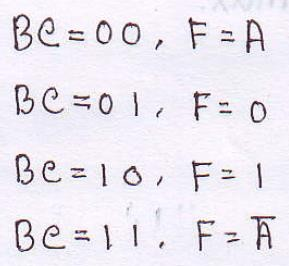 BC=00, F=A
BC=01, F=0
BC=10, F=1
BC=11. F=A̅